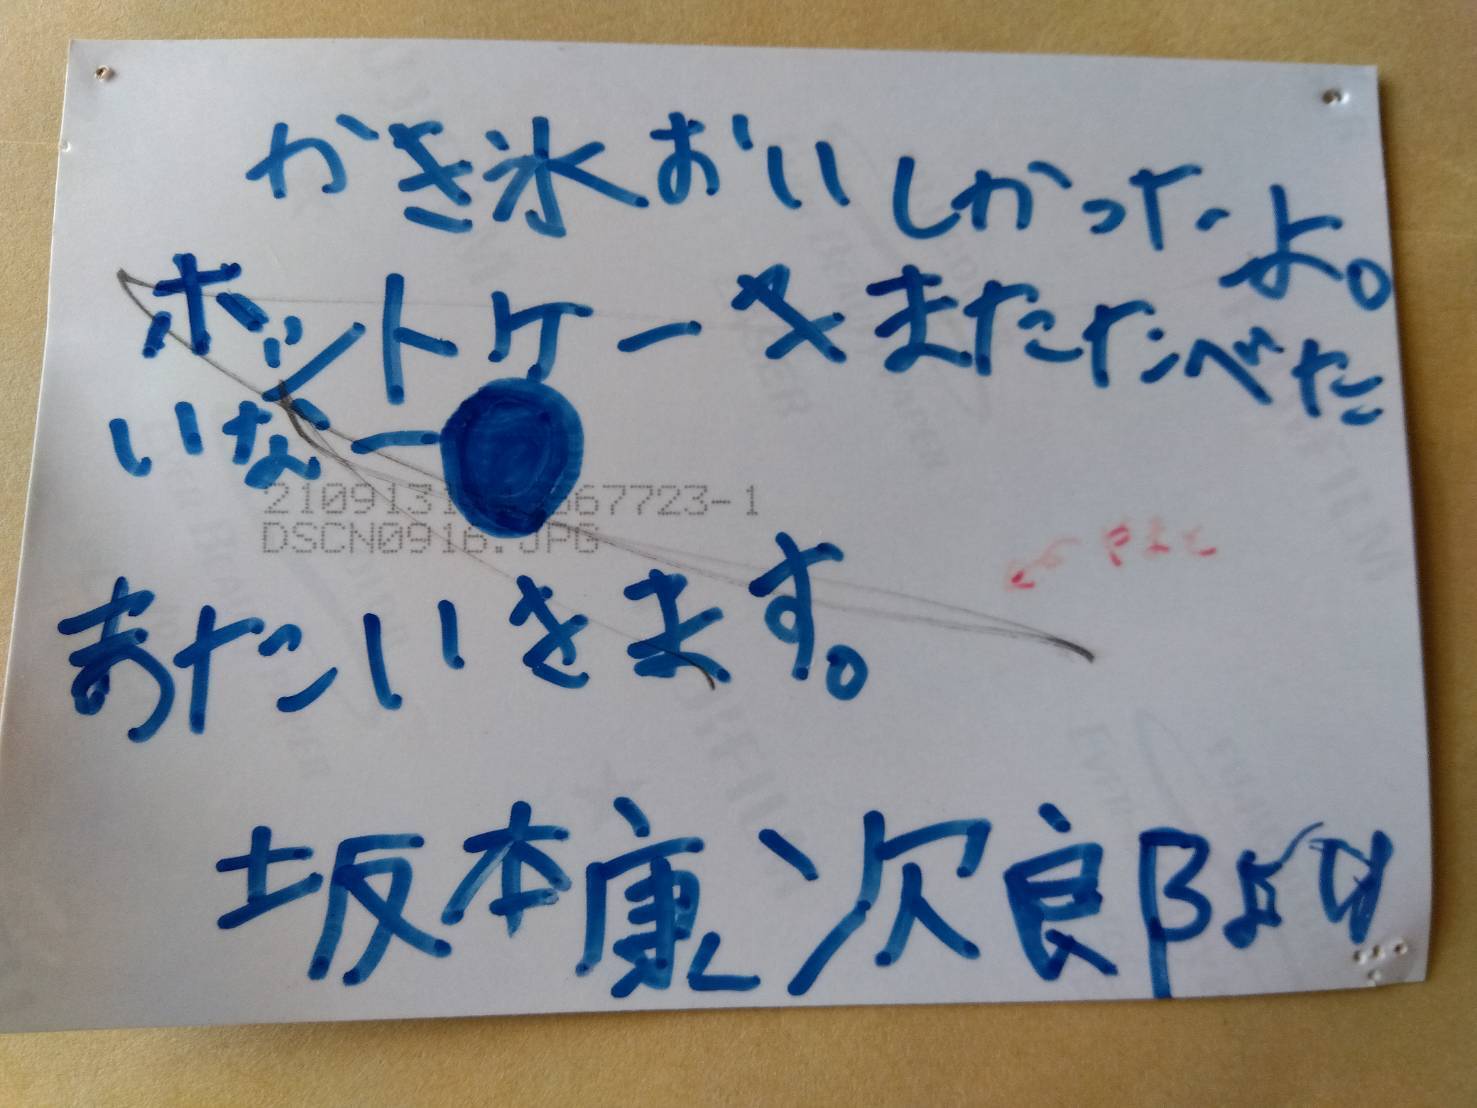 かき氷おいしかったよ。
ホットケーキまたたべた
いなー
DSCN0916.JPG
またいきます。
坂本康次郎より